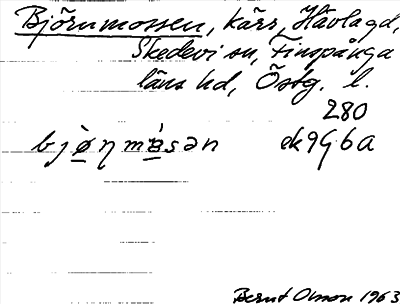 Björnmossen, kärr, Hävlagd,
Skedevi sn, Finspånga
läns hd, Östg. l.
280
bjø̀ṇmɷ̀sən ek9G6a
Bernt Olsson 1963